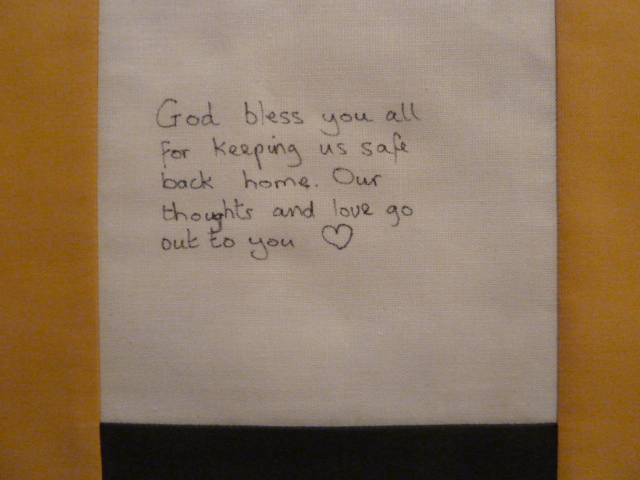 God bless you all
for keeping us safe
back home. Our
thoughts and love go
out to you ♡